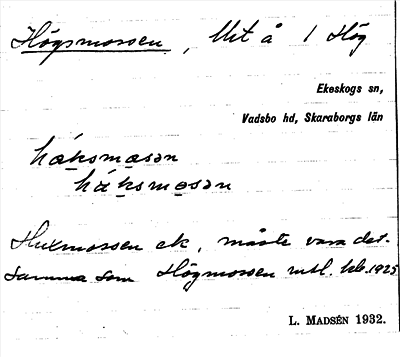 Högsmossen, Ut å 1 Hög
Ekeskogs sn,
Vadsbo hd, Skaraborgs län
håksmåsən
håksmosən
Huxmossen ek, måste vara det-
samma som Högmossen utl. kb. 1925
L. MADSÉN 1932.